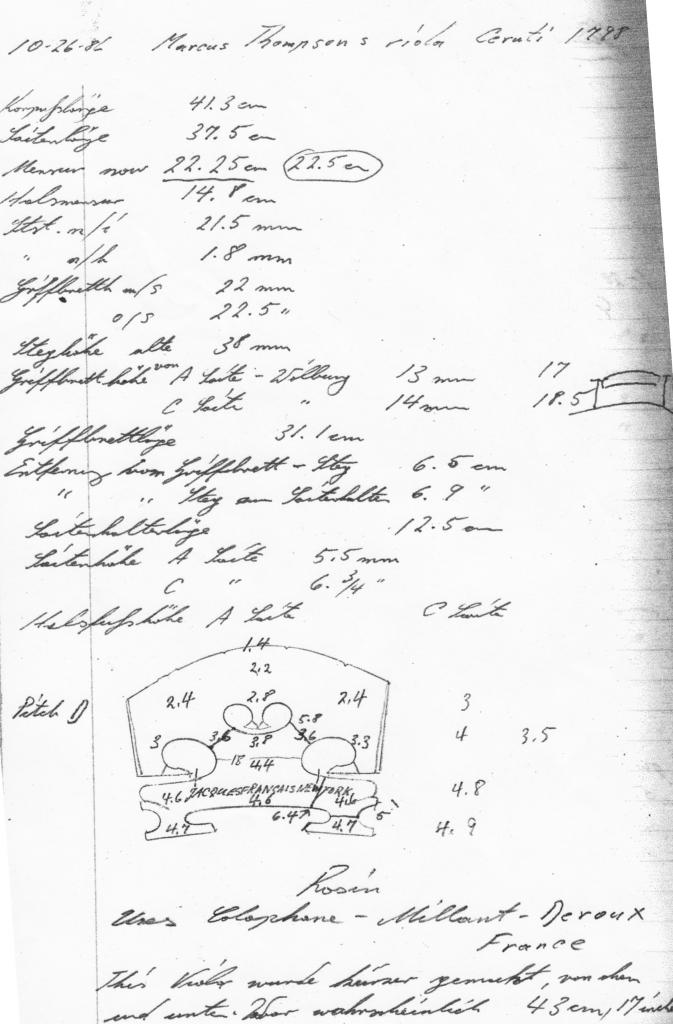 10-26-86 Marcus Thompson's viola Ceruti 1798
Korpuslänge 41.3 cm
Saitenlänge 37.5 cm
Mensur now 22.25 cm 22.5 cm
Halsmensur 14.8 cm
Stst. n/i 21.5 mm
" n/h 1.8 mm
Griffbrettb m/s 22 mm
o/s 22.5 "
Steghöhe alte 38 mm
Griffbrett höhe von A Saite - Wölbung 13 mm 17
C Saite " 14 mm 18.5
Griffbrettlänge 31.1 cm
Entfernung vom Griffbrett - Steg 6.5 cm
" " Steg am Saitenhalter 6.9 "
Saitenhalterlänge 12.5 cm
Saitenhöhe A Saite 5.5 mm
C " 6. 3/4 "
Halsfusshöhe A Saite C Saite
1.4
2.2
Pitch D 2.4 2.8 2.4 3
5.8
3 3.6 3.8 3.6 3.3 4 3.5
18 4.4
4.6 JACQUES FRANÇAIS NEW YORK 4.6 4.8
4.6
6.4 5
4.7 4.7 4.9
Rosin
Uses Colophane - Millant - Deroux
France
This Viola wurde kürzer gemacht, von oben
und unten. War wahrscheinlich 43 cm, 17 inch